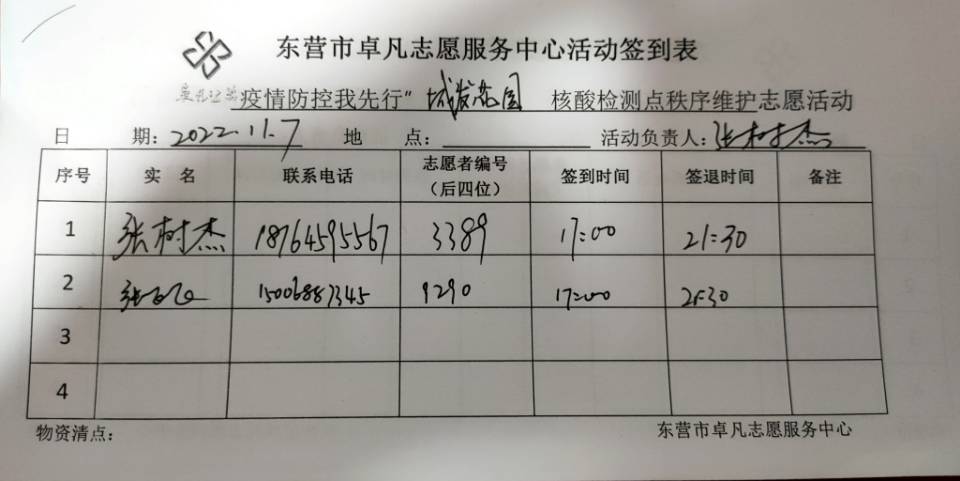 东营市卓凡志愿服务中心活动签到表
疫情防控我先行”城发花园 核酸检测点秩序维护志愿活动
日 期：2022.11.7 地 点： 活动负责人：张树杰
序号 实 名 联系电话 志愿者编号（后四位） 签到时间 签退时间 备注
1 张树杰 18764595567 3389 17:00 21:30
2 15006887345 9290 17:00 21:30
3
4
物资清点： 东营市卓凡志愿服务中心